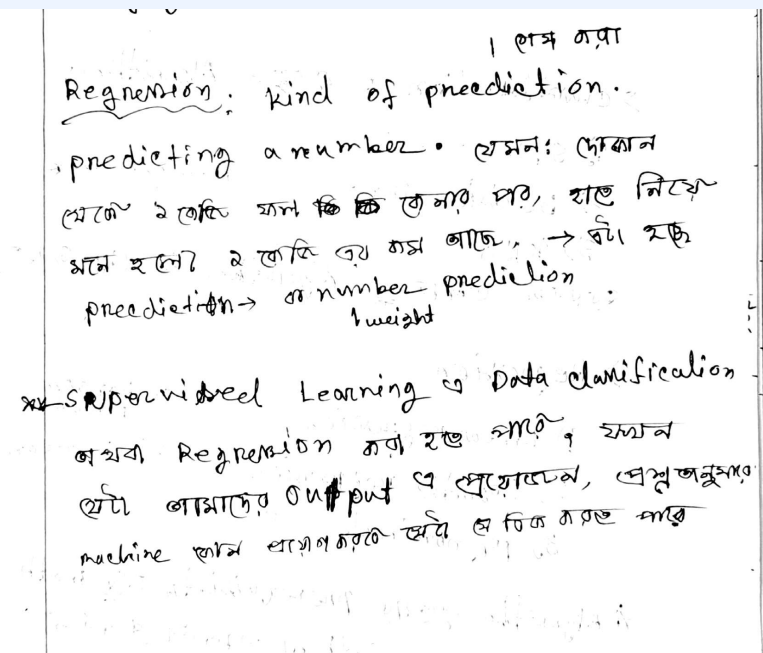 । শেষ করা
Regression: Kind of preediction.
predicting a number. যেমন: দোকান
থেকে ২ কেজি ফল কেনার পর, হাতে নিয়ে
মনে হলো ২ কেজি এর কম আছে, → এটা হচ্ছে
preediction → or number prediction
weight
Supervised Learning এ Data classification
অথবা Regression করা হতে পারে, যখন
যেটা আমাদের output এ প্রয়োজন, প্রশ্ন অনুসারে
machine কোনটা প্রয়োগ করবে সেটা সে ঠিক করতে পারে